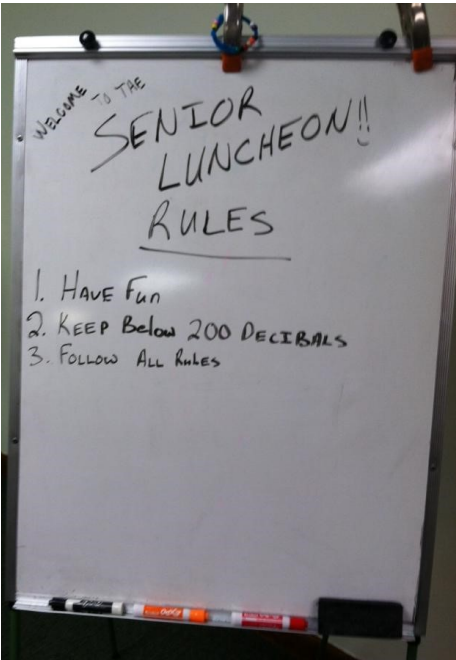 WELCOME TO THE
SENIOR
LUNCHEON!!
RULES
1. HAVE FUN
2. KEEP BELOW 200 DECIBALS
3. FOLLOW ALL RULES
EXPO